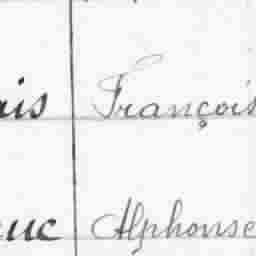 ais François
euc Alphonse